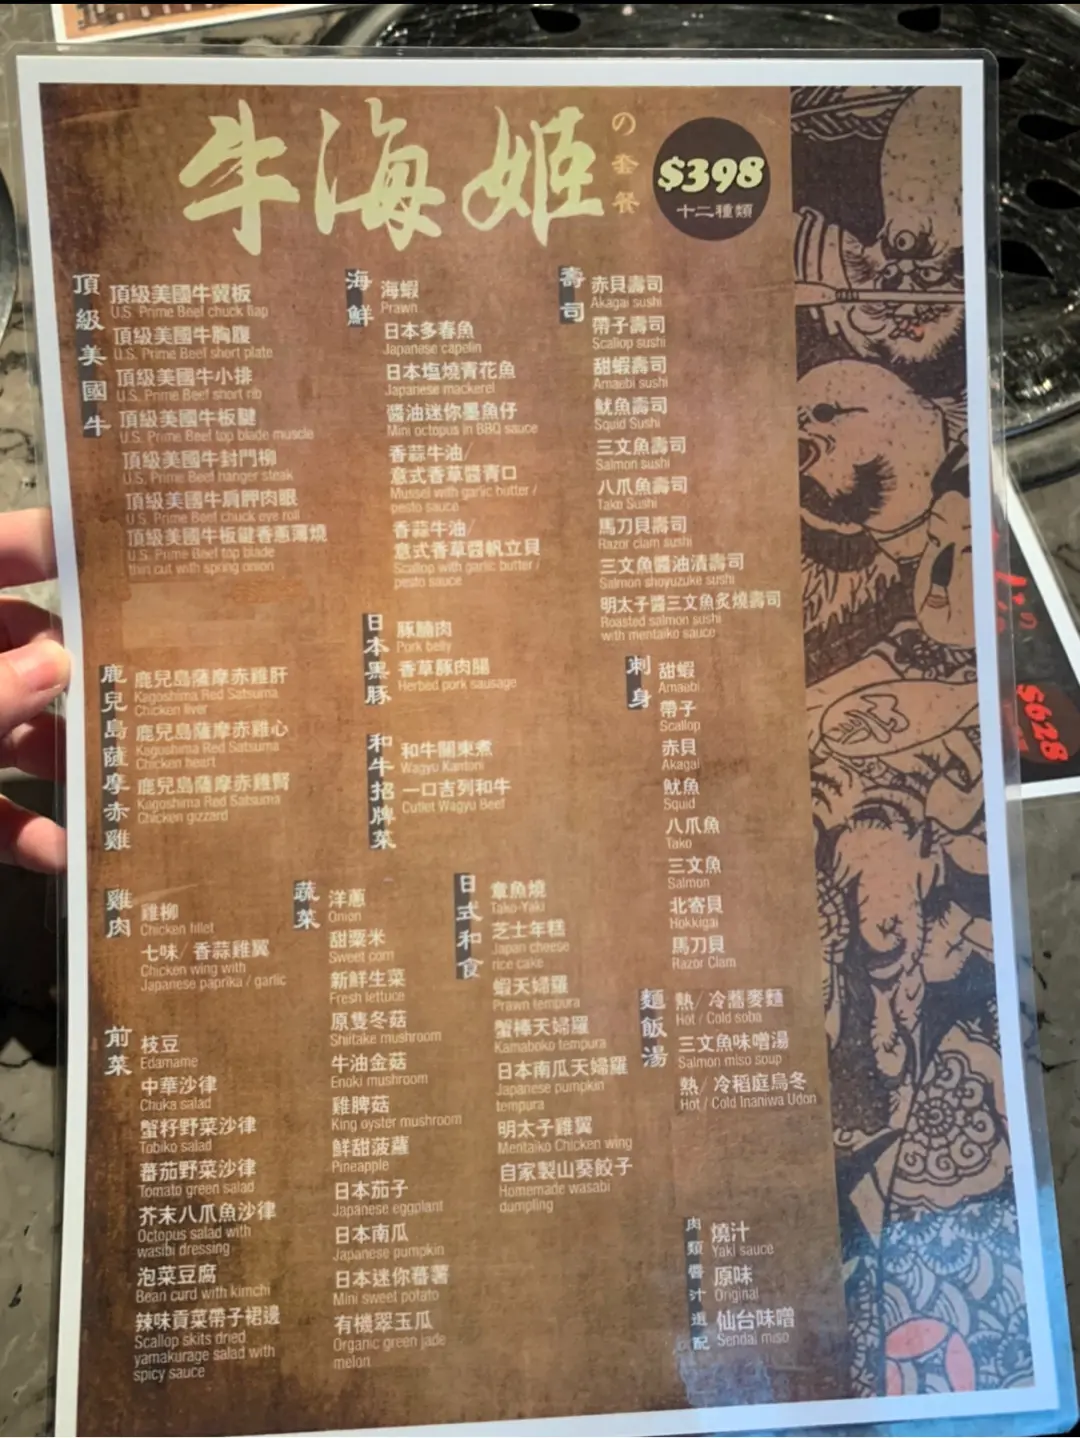 牛海姬
の套餐
$398
十二種類
頂級美國牛
頂級美國牛翼板
U.S. Prime Beef chuck flap
頂級美國牛胸腹
U.S. Prime Beef short plate
頂級美國牛小排
U.S. Prime Beef short rib
頂級美國牛板腱
U.S. Prime Beef top blade muscle
頂級美國牛封門柳
U.S. Prime Beef hanger steak
頂級美國牛肩胛肉眼
U.S. Prime Beef chuck eye roll
頂級美國牛板腱香蔥薄燒
U.S. Prime Beef top blade
thin cut with spring onion
鹿兒島薩摩赤雞
鹿兒島薩摩赤雞肝
Kagoshima Red Satsuma
Chicken liver
鹿兒島薩摩赤雞心
Kagoshima Red Satsuma
Chicken heart
鹿兒島薩摩赤雞腎
Kagoshima Red Satsuma
Chicken gizzard
雞肉
雞柳
Chicken fillet
七味/ 香蒜雞翼
Chicken wing with
Japanese paprika / garlic
前菜
枝豆
Edamame
中華沙律
Chuka salad
蟹籽野菜沙律
Tobiko salad
蕃茄野菜沙律
Tomato green salad
芥末八爪魚沙律
Octopus salad with
wasibi dressing
泡菜豆腐
Bean curd with kimchi
辣味貢菜帶子裙邊
Scallop skits dried
yamakurage salad with
spicy sauce
海鮮
海蝦
Prawn
日本多春魚
Japanese capelin
日本塩燒青花魚
Japanese mackerel
醬油迷你墨魚仔
Mini octopus in BBQ sauce
香蒜牛油/
意式香草醬青口
Mussel with garlic butter /
pesto sauce
香蒜牛油/
意式香草醬帆立貝
Scallop with garlic butter /
pesto sauce
日本黑豚
豚腩肉
Pork belly
香草豚肉腸
Herbed pork sausage
和牛招牌菜
和牛關東煮
Wagyu Kantoni
一口吉列和牛
Cutlet Wagyu Beef
蔬菜
洋蔥
Onion
甜粟米
Sweet corn
新鮮生菜
Fresh lettuce
原隻冬菇
Shiitake mushroom
牛油金菇
Enoki mushroom
雞脾菇
King oyster mushroom
鮮甜菠蘿
Pineapple
日本茄子
Japanese eggplant
日本南瓜
Japanese pumpkin
日本迷你蕃薯
Mini sweet potato
有機翠玉瓜
Organic green jade
melon
日式和食
章魚燒
Tako-Yaki
芝士年糕
Japan cheese
rice cake
蝦天婦羅
Prawn tempura
蟹棒天婦羅
Kamaboko tempura
日本南瓜天婦羅
Japanese pumpkin
tempura
明太子雞翼
Mentaiko Chicken wing
自家製山葵餃子
Homemade wasabi
dumpling
壽司
赤貝壽司
Akagai sushi
帶子壽司
Scallop sushi
甜蝦壽司
Amaebi sushi
魷魚壽司
Squid Sushi
三文魚壽司
Salmon sushi
八爪魚壽司
Tako Sushi
馬刀貝壽司
Razor clam sushi
三文魚醬油漬壽司
Salmon shoyuzuke sushi
明太子醬三文魚炙燒壽司
Roasted salmon sushi
with mentaiko sauce
刺身
甜蝦
Amaebi
帶子
Scallop
赤貝
Akagai
魷魚
Squid
八爪魚
Tako
三文魚
Salmon
北寄貝
Hokkigai
馬刀貝
Razor Clam
麵飯湯
熱/ 冷蕎麥麵
Hot / Cold soba
三文魚味噌湯
Salmon miso soup
熱/ 冷稻庭烏冬
Hot / Cold Inaniwa Udon
肉類醬汁選配
燒汁
Yaki sauce
原味
Original
仙台味噌
Sendai miso
$628